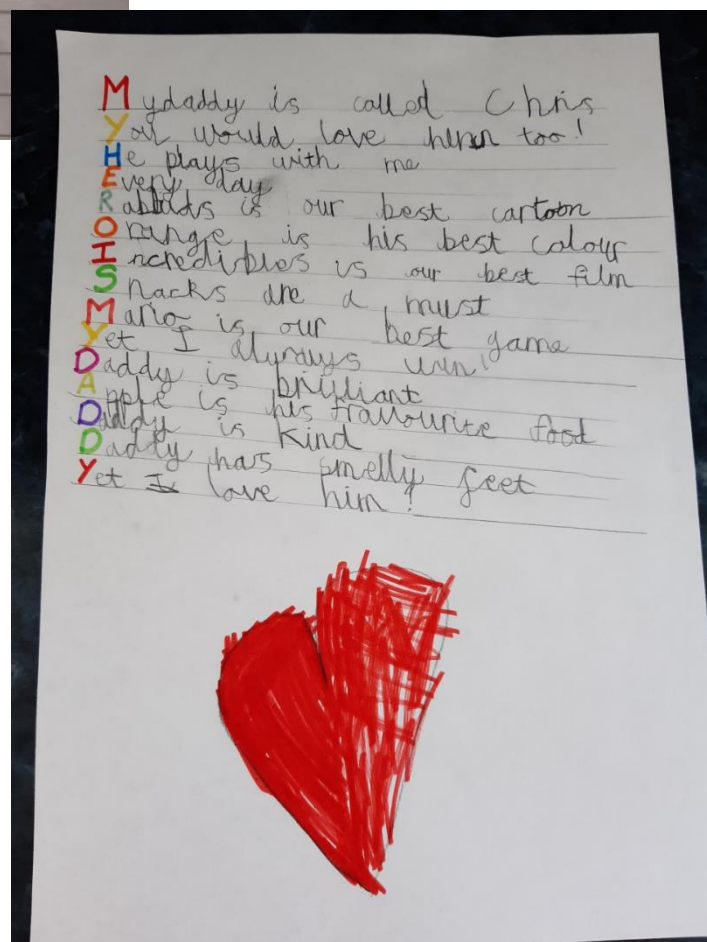 Mydaddy is called Chris
You would love him too!
He plays with me
Every day
Rabbids is our best cartoon
Orange is his best colour
Incredibles is our best film
Snacks are a must
Mario is our best game
Yet I always win!
Daddy is brilliant
Apple is his favourite food
Daddy is kind
Daddy has smelly feet
Yet I love him!